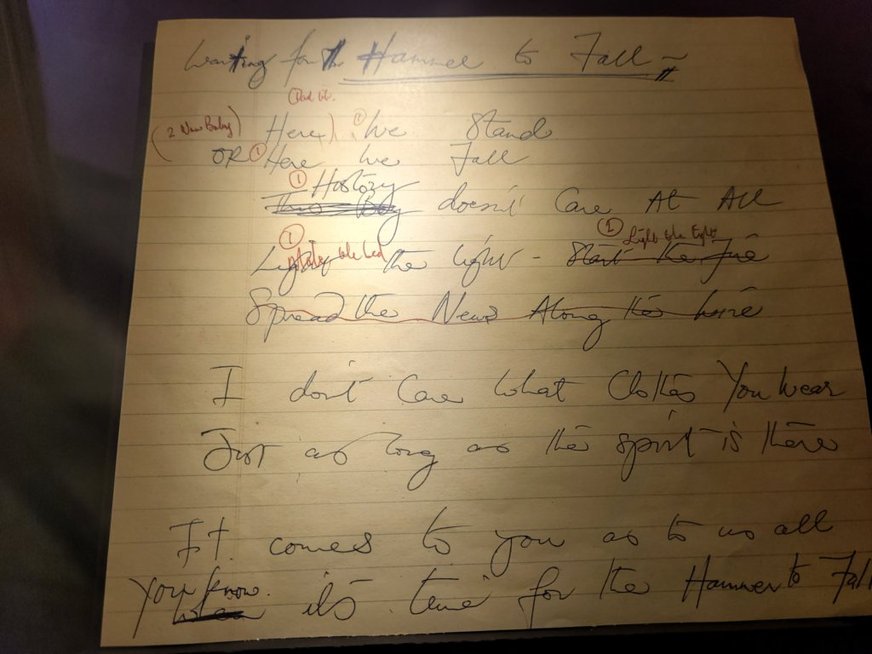 Waiting for the Hammer to Fall -
(2 New Baby) Here) ① We Stand
OR ① Here We Fall
① History
doesn't Care At All
① ①
the light - Start the Fire
Spread the News Along the wire
I don't Care What Clothes You wear
Just as long as the spirit is there
It comes to you as to us all
You know
its time for the Hammer to Fall